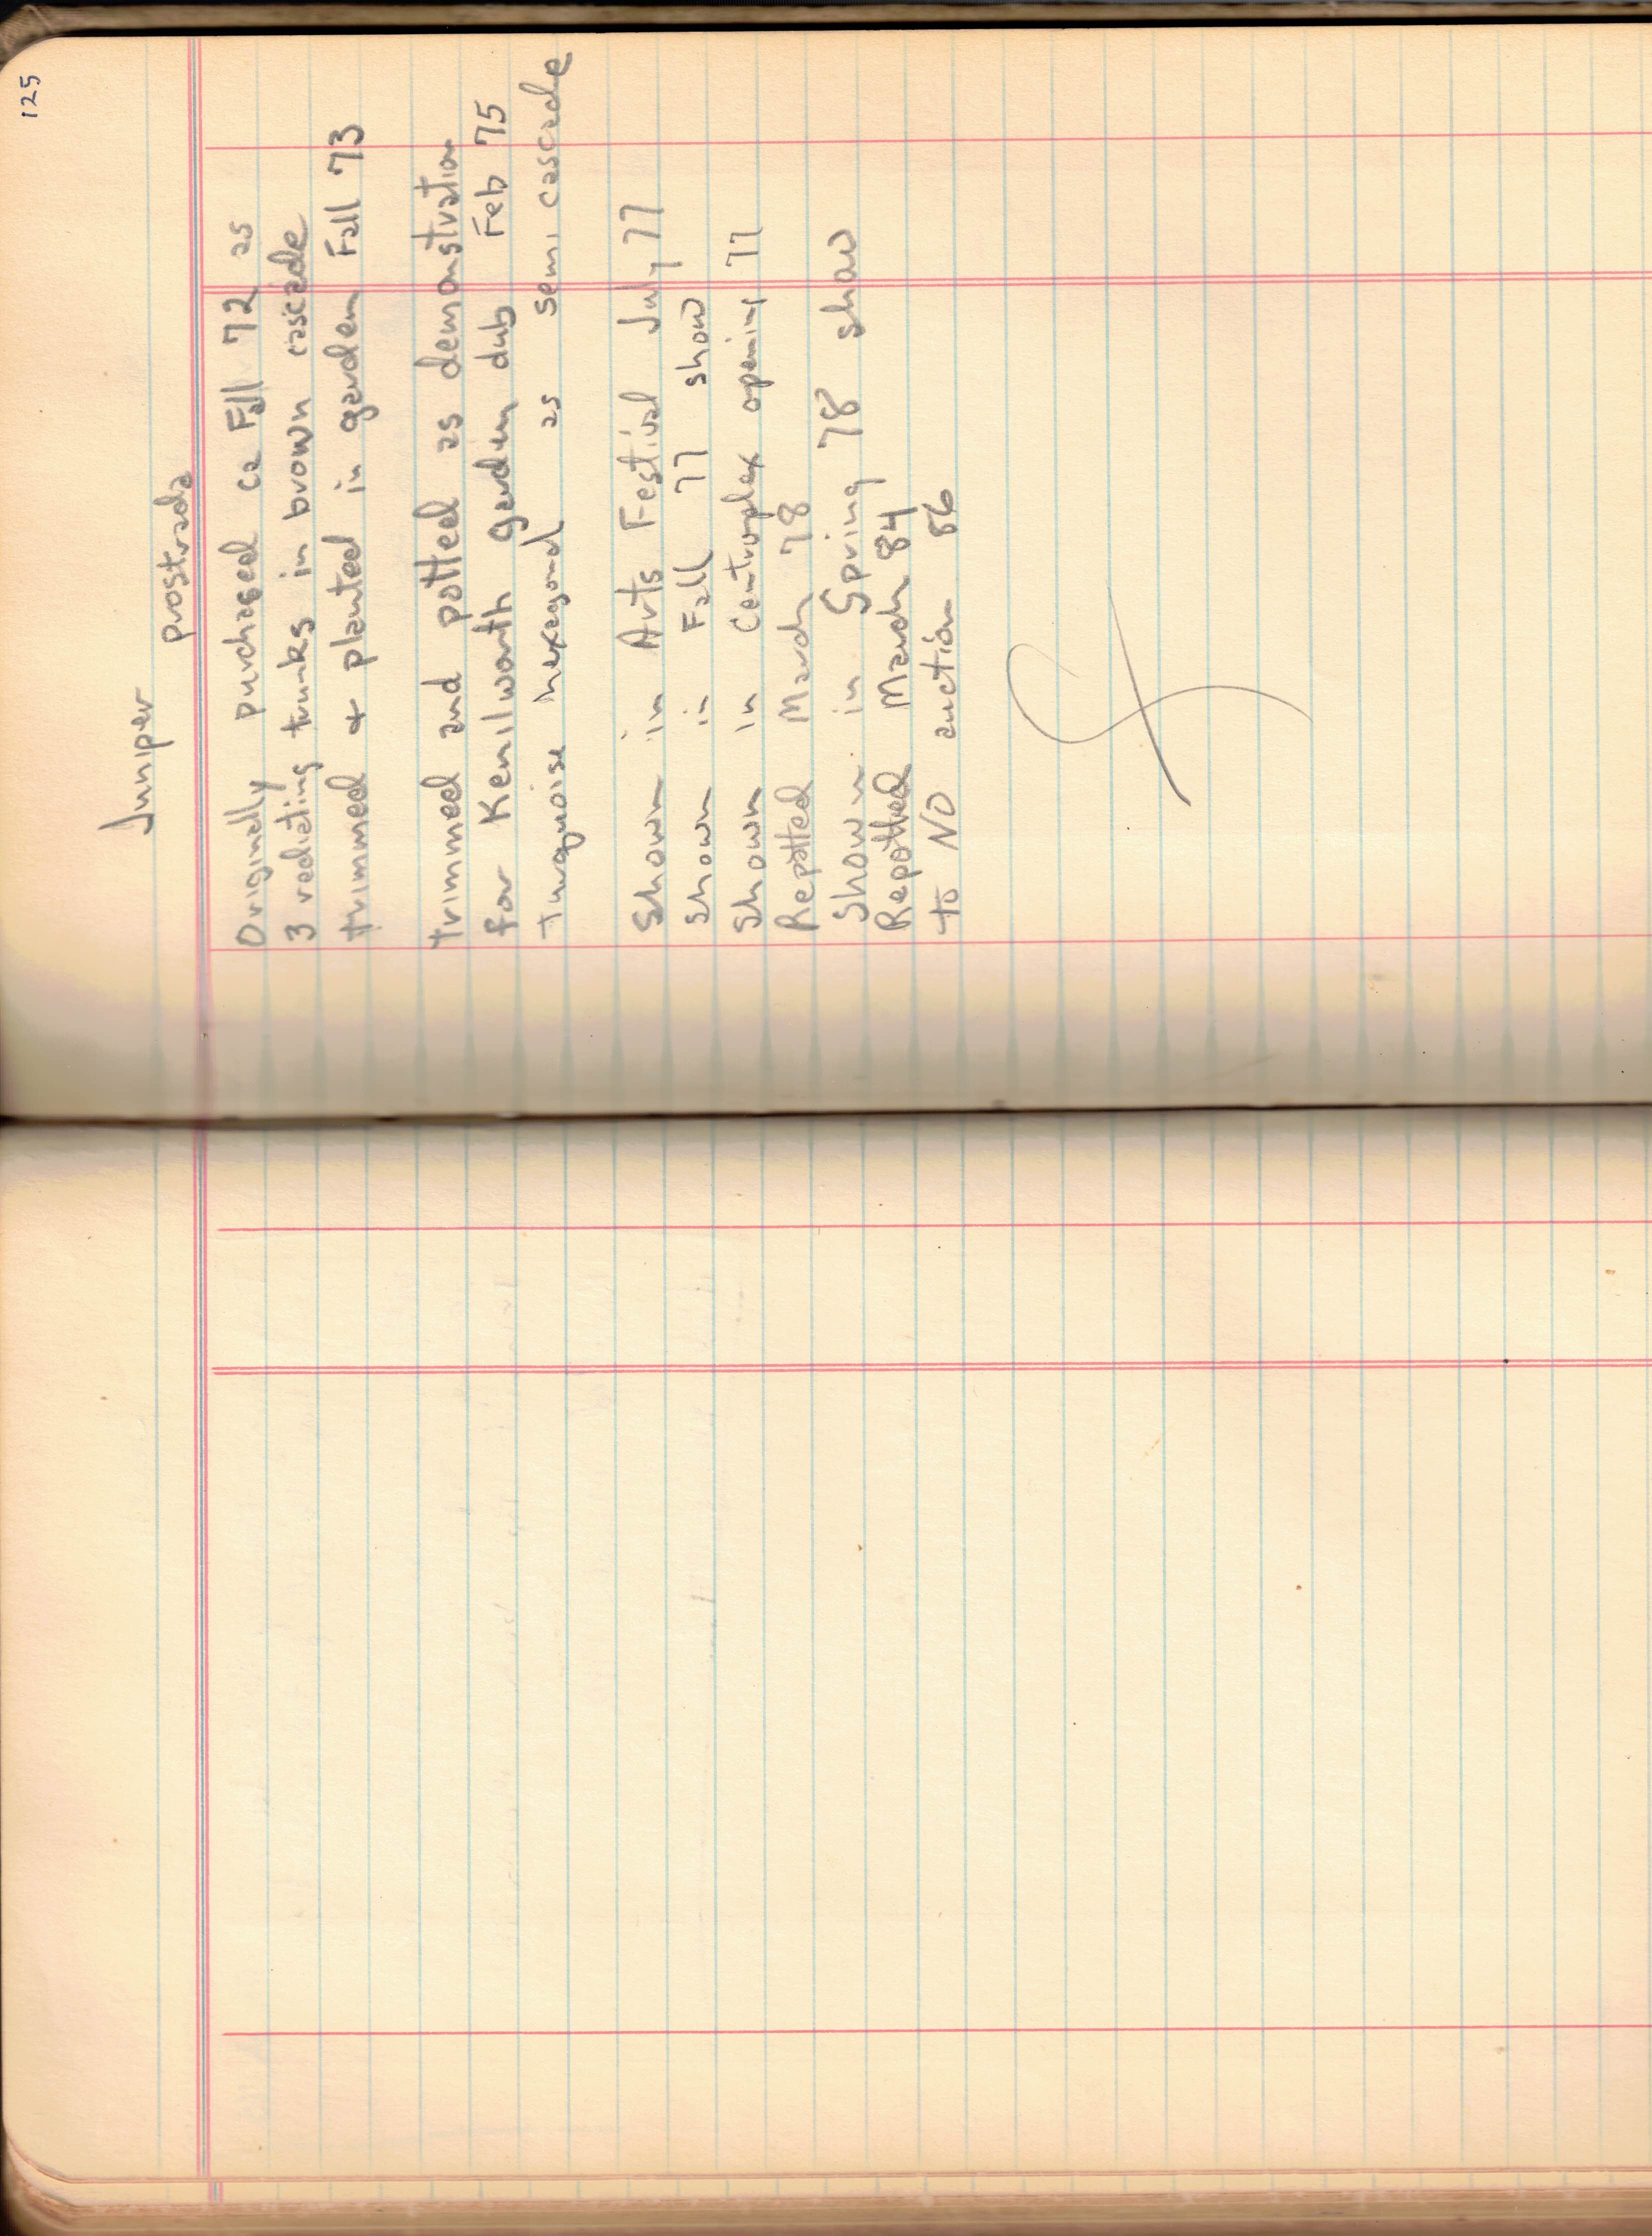 125
Juniper
prostrada
Originally purchased ca Fall 72 as
3 radiating trunks in brown cascade
trimmed & planted in garden Fall 73
trimmed and potted as demonstration
for Kenilworth garden club Feb 75
turquoise hexagonal as semi cascade
Shown in Arts Festival July 77
Shown in Fall 77 show
Shown in Centroplex opening 77
Repotted March 78
Shown in Spring 78 show
Repotted March 84
to NO auction 86